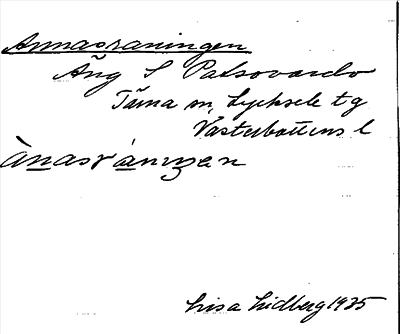 Annasraningen
Äng S Patsovardo
Tärna sn, Lycksele tg
Västerbottens l
ànasràningen
Lisa Lidberg 1935